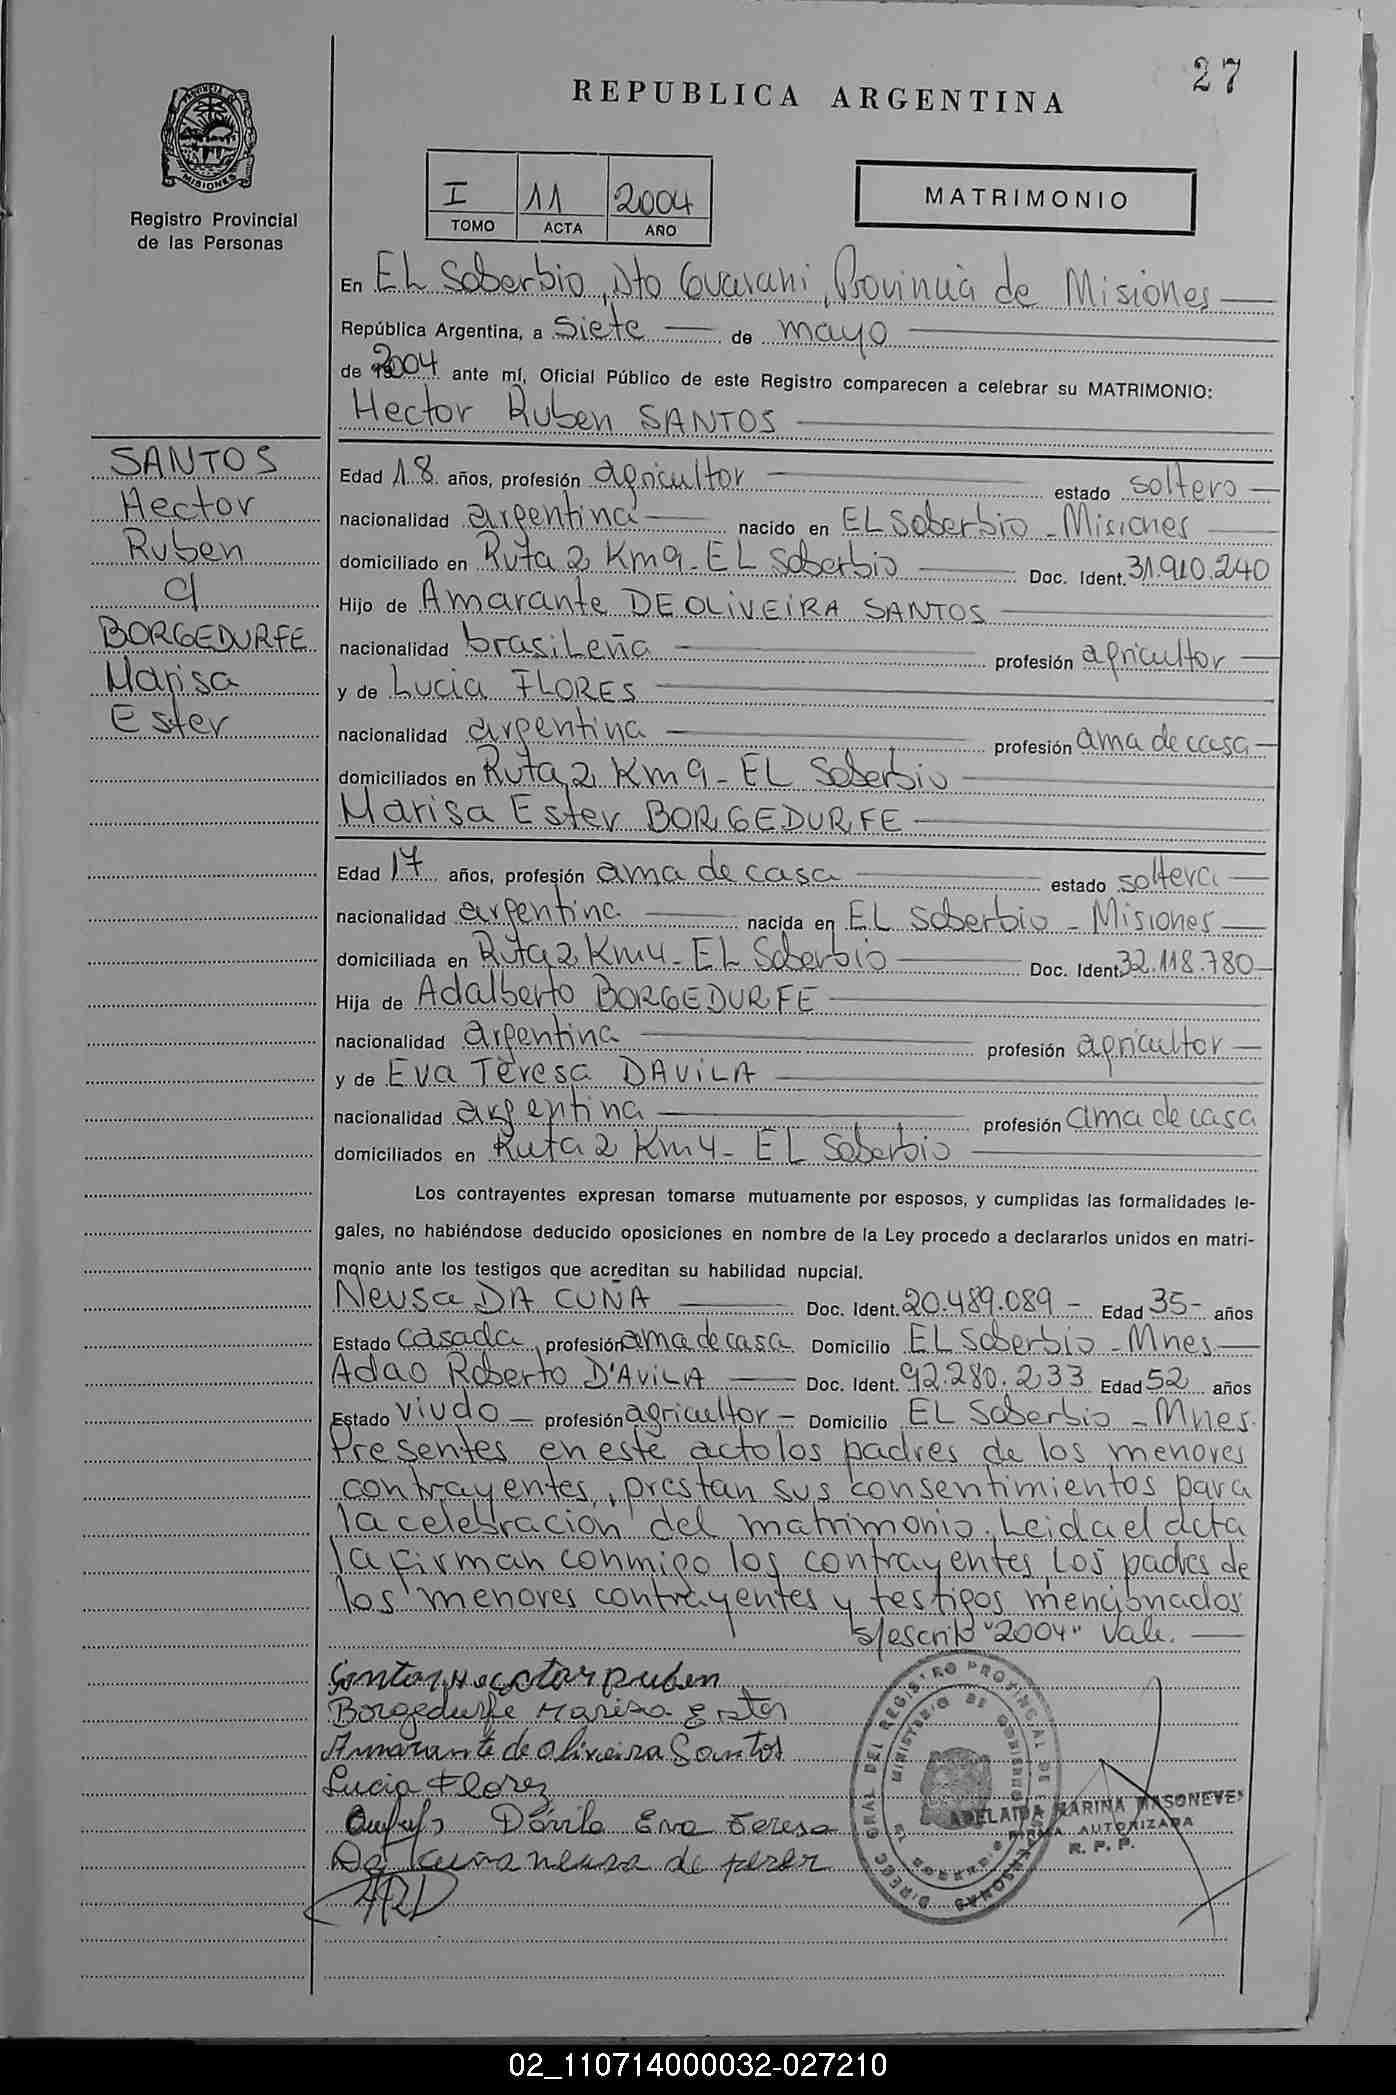 27
REPUBLICA ARGENTINA
PROVINCIA DE
MISIONES
Registro Provincial
de las Personas
I 11 2004
TOMO ACTA AÑO
MATRIMONIO
En EL Soberbio, Dto Guarani, Provincia de Misiones
República Argentina, a Siete de mayo
de 2004 ante mí, Oficial Público de este Registro comparecen a celebrar su MATRIMONIO:
Hector Ruben SANTOS
SANTOS
Hector
Ruben
c/
BORGEDURFE
Marisa
Ester
Edad 18 años, profesión agricultor estado soltero
nacionalidad argentina nacido en EL Soberbio - Misiones
domiciliado en Ruta 2 Km 9 - EL Soberbio Doc. Ident. 31.910.240
Hijo de Amarante DE OLIVEIRA SANTOS
nacionalidad brasileña profesión agricultor
y de Lucia FLORES
nacionalidad argentina profesión ama de casa
domiciliados en Ruta 2 Km 9 - EL Soberbio
Marisa Ester BORGEDURFE
Edad 17 años, profesión ama de casa estado soltera
nacionalidad argentina nacida en EL Soberbio - Misiones
domiciliada en Ruta 2 Km 4 - EL Soberbio Doc. Ident. 32.118.780
Hija de Adalberto BORGEDURFE
nacionalidad argentina profesión agricultor
y de Eva Teresa DAVILA
nacionalidad argentina profesión ama de casa
domiciliados en Ruta 2 Km 4 - EL Soberbio
Los contrayentes expresan tomarse mutuamente por esposos, y cumplidas las formalidades le-
gales, no habiéndose deducido oposiciones en nombre de la Ley procedo a declararlos unidos en matri-
monio ante los testigos que acreditan su habilidad nupcial.
Neusa DA CUÑA Doc. Ident. 20.489.089 - Edad 35 - años
Estado casada profesión ama de casa Domicilio EL Soberbio - Mnes
Adao Roberto D'AVILA Doc. Ident. 92.280.233 Edad 52 años
Estado viudo - profesión agricultor - Domicilio EL Soberbio - Mnes.
Presentes en este acto los padres de los menores
contrayentes, prestan sus consentimientos para
la celebracion del matrimonio. Leida el acta
la firman conmigo los contrayentes, los padres de
los menores contrayentes y testigos mencionados
s/escrito "2004" Vale.
Santos Hecotar ruben
Borgedurfe Marisa Ester
Amarante de oliveira Santos
Lucia Florez
Dávila Eva Teresa
Da cuna neusa de perez
ARD
DIRECC. GRAL DEL REGISTRO PROVINCIAL DE LAS PERSONAS
MINISTERIO DE GOBIERNO
ADELAIDA MARINA MASONEVE
FIRMA AUTORIZADA
R. P. P.
02_110714000032-027210